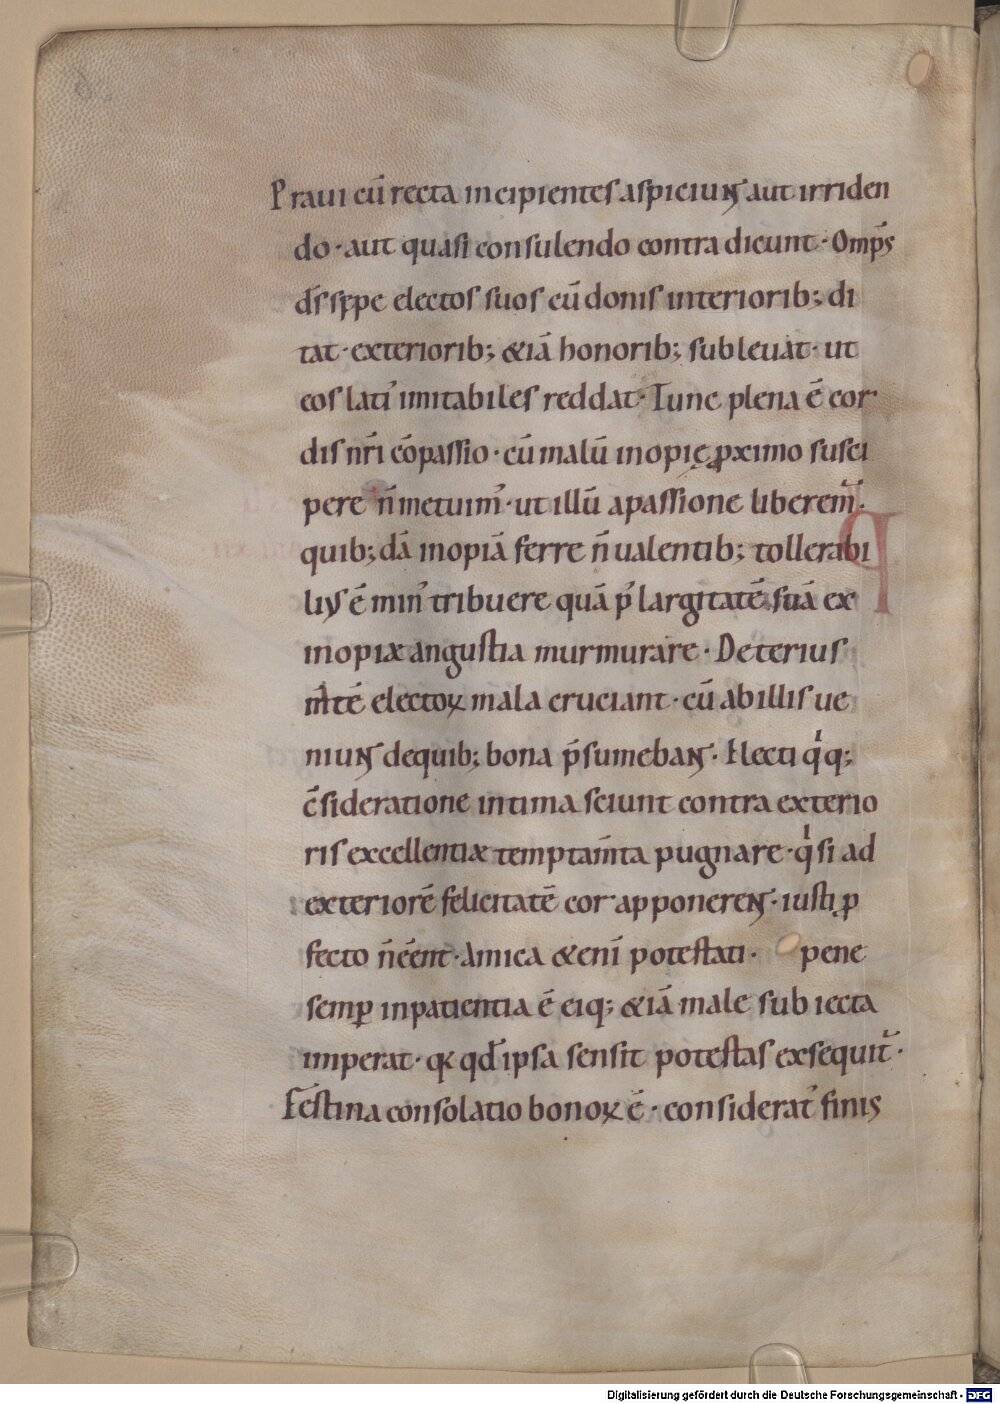 Praui cū recta incipientes aspiciunt aut irriden
do · aut quasi consulendo contra dicunt · Omp̄s
ds̄ sępe electos suos cū donis interiorib; di
tat · exteriorib; &iā honorib; subleuat · ut
eos lati᷒ imitabiles reddat · Tunc plena ē cor
dis nr̄i cōpassio · cū malū inopię ꝓximo susci
pere n̄ metuim᷒ · ut illū a passione liberem᷒ ·
quib; dā inopiā ferre n̄ ualentib; tollerabi
lius ē min᷒ tribuere quā p᷒ largitatē suā ex
inopiæ angustia murmurare · Deterius
m̄tē electoꝝ mala cruciant · cū ab illis ue
niunt de quib; bona p̄sumebant · Electi qͥq;
c̄sideratione intima sciunt contra exterio
ris excellentiæ temptam̄ta pugnare · qͥ si ad
exteriorē felicitatē cor apponerent · iusti ꝓ
fecto n̄ ēent · Amica &enī potestati · pene
semꝑ inpatientia ē eiq; &iā male subiecta
imperat · qꝛ qd̄ ipsa sensit potestas exsequit᷒ ·
Festina consolatio bonoꝝ ē · considerat᷒ finis
Digitalisierung gefördert durch die Deutsche Forschungsgemeinschaft - DFG